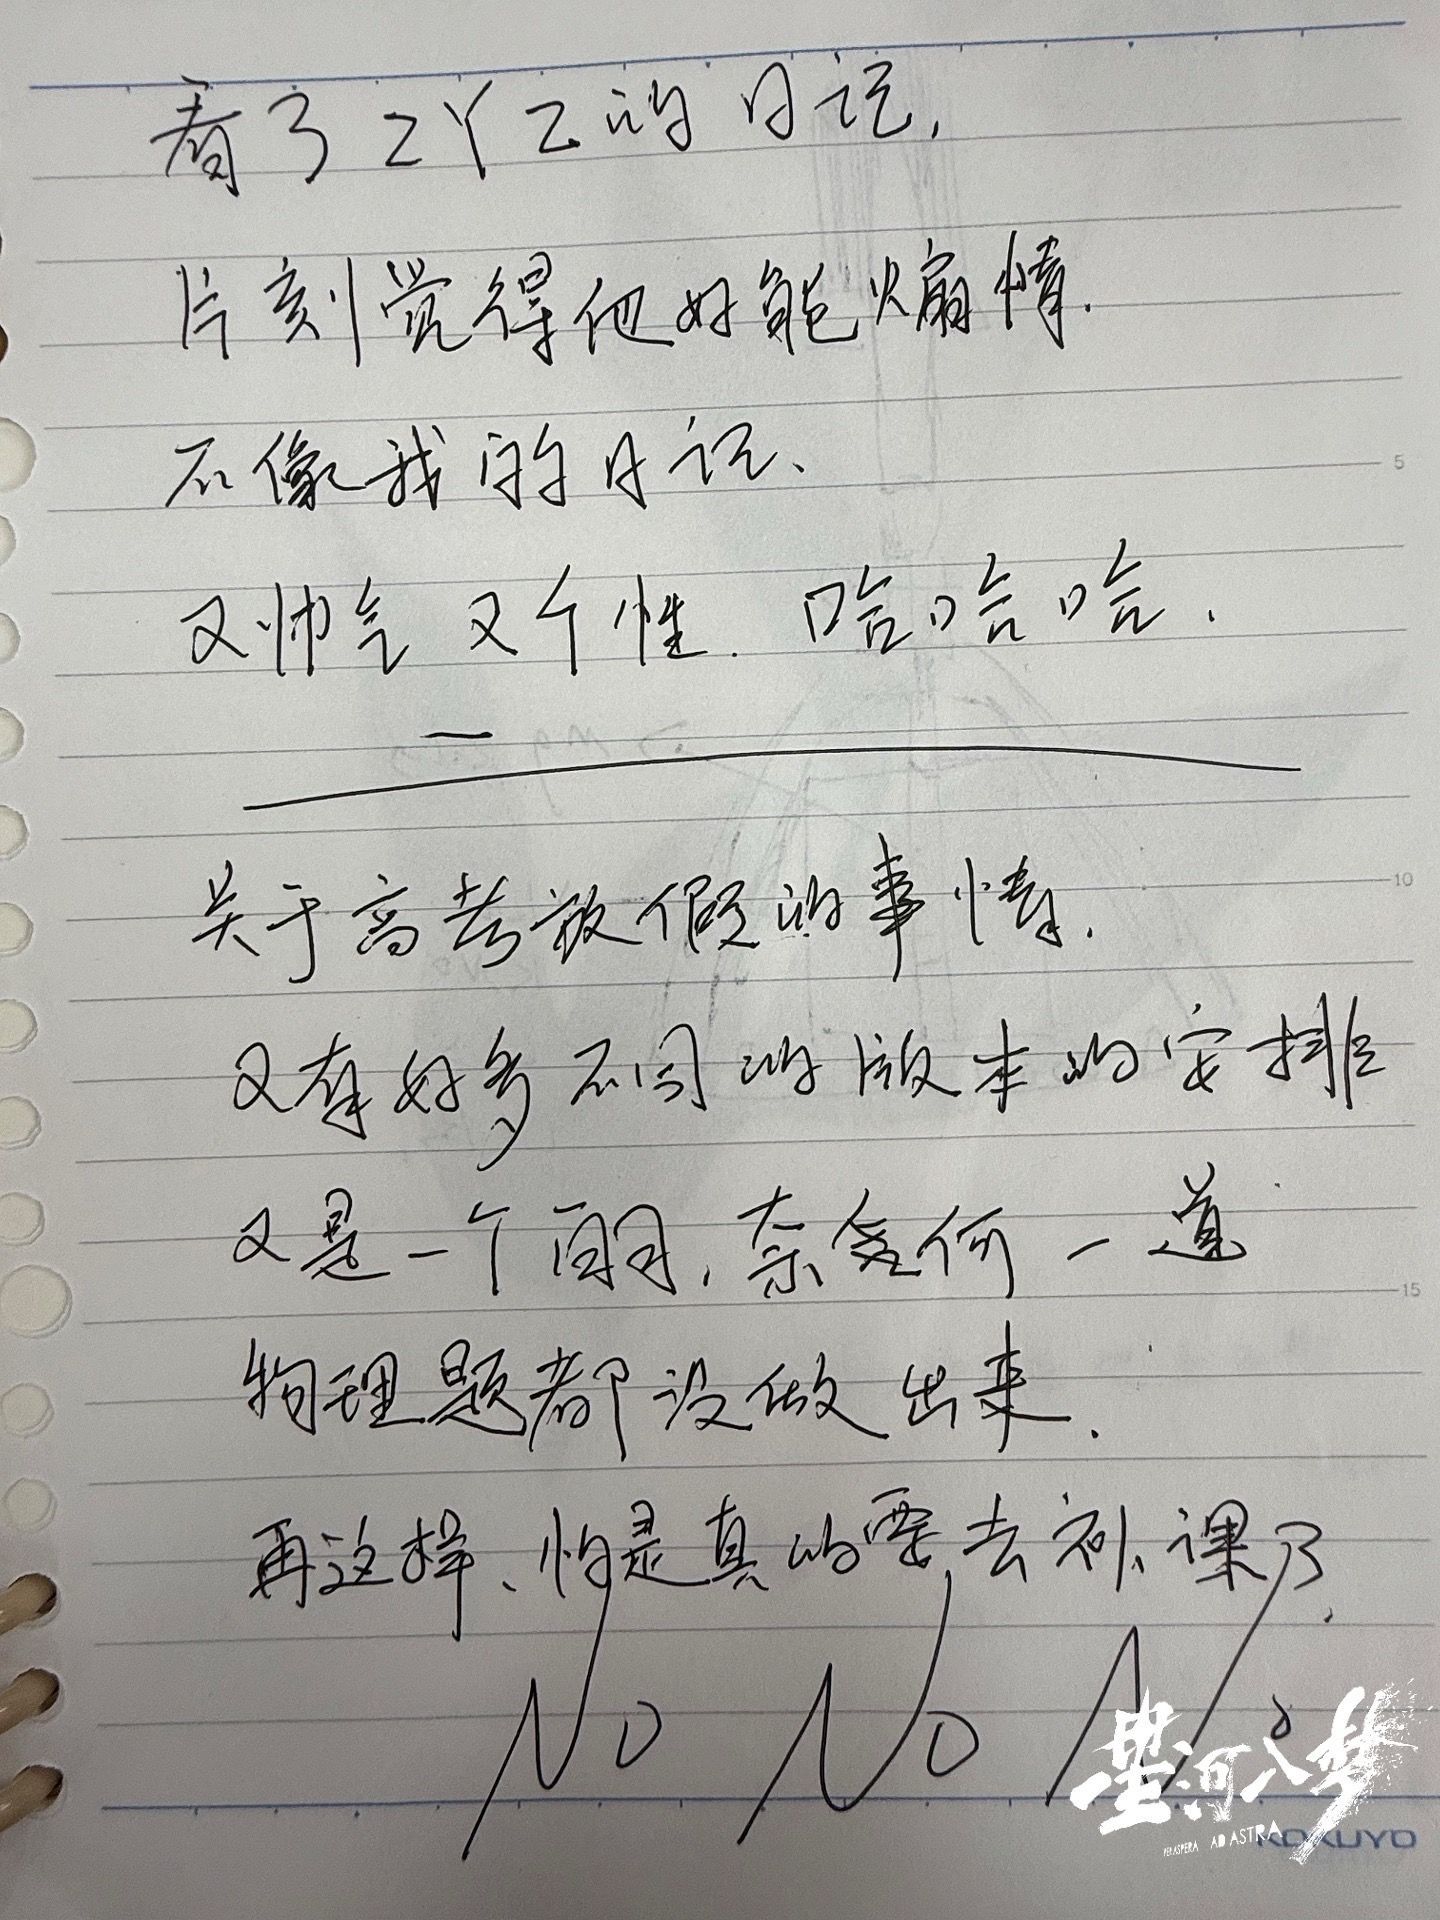 看了ZYZ的日记,
片刻觉得他好能煽情.
不像我的日记、
又帅气 又个性. 哈哈哈.
关于高考放假的事情.
又有好多不同的版本的安排
又是一个 , 奈何一道
物理题都没做出来.
再这样、怕是真的要去补课了.
No No No
星河入梦
PER ASPERA AD ASTRA
KOKUYO
5
10
15